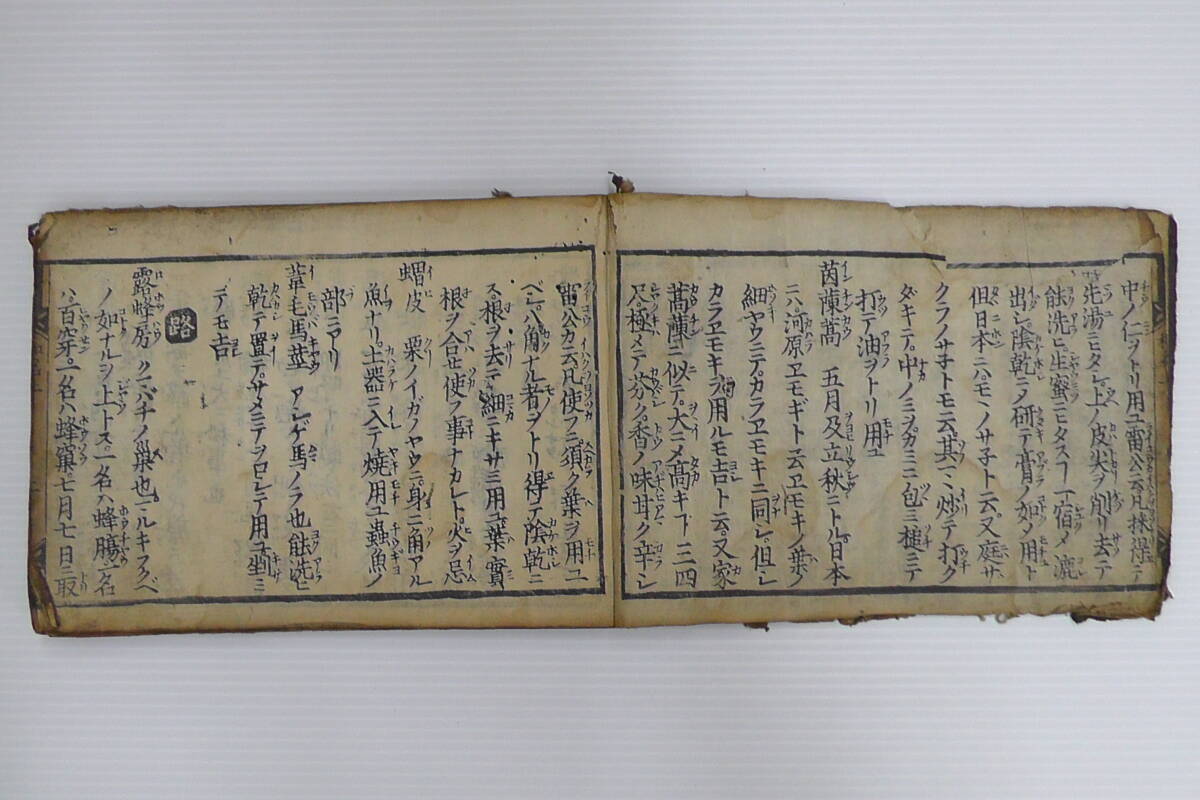 中ノ仁ヲトリ用ユ雷公云凡採得テ
先湯ニモタシ上ノ皮尖ヲ削リ去テ
能洗ヒ生蜜ニモタスヿ一宿ノ漉
出シ陰乾ニノ研テ膏ノ如ノ用ト
但日本ニハモノサ子ト云又庭サ
クラノサ子トモ云其ミ炒テ打ク
ダキテ中ノミヲカミニ包ミ槌ニテ
打テ油ヲトリ用ユ
茵蔯蒿 五月及立秋ニトル日本
ニハ河原ヱモギト云ヱモキノ葉ノ
細ヤウニテカラヱモキニ同シ但シ
カラヱモキヲ用ルモ吉ト云又家
茵蔯ニ似テ大ニメ高キヿ三四
尺極メテ芬ク香ノ味甘ク辛シ
雷公カ云凡使フニ須ク葉ヲ用ユ
ベシ八角ナル者ヲトリ得テ陰乾ニ
ス根ヲ去テ細ニキサミ用ユ葉實
根ヲ合セ使フ事ナカレト火ヲ忌
蝟皮 栗ノイガノヤウニ身ニ角アル
魚ナリ土器ニ入テ焼用ユ蟲魚ノ
部ニアリ
葦毛馬蹄 アシゲ馬ノラ也能洗ヒ
乾テ置テサメニテヲロシテ用ユ
テモ吉
路
露蜂房 クマバチノ巣也マルキアクベ
ノ如ナルヲ上トス一名ハ蜂膓一名
ハ百穿一名ハ蜂窠七月七日ニ取